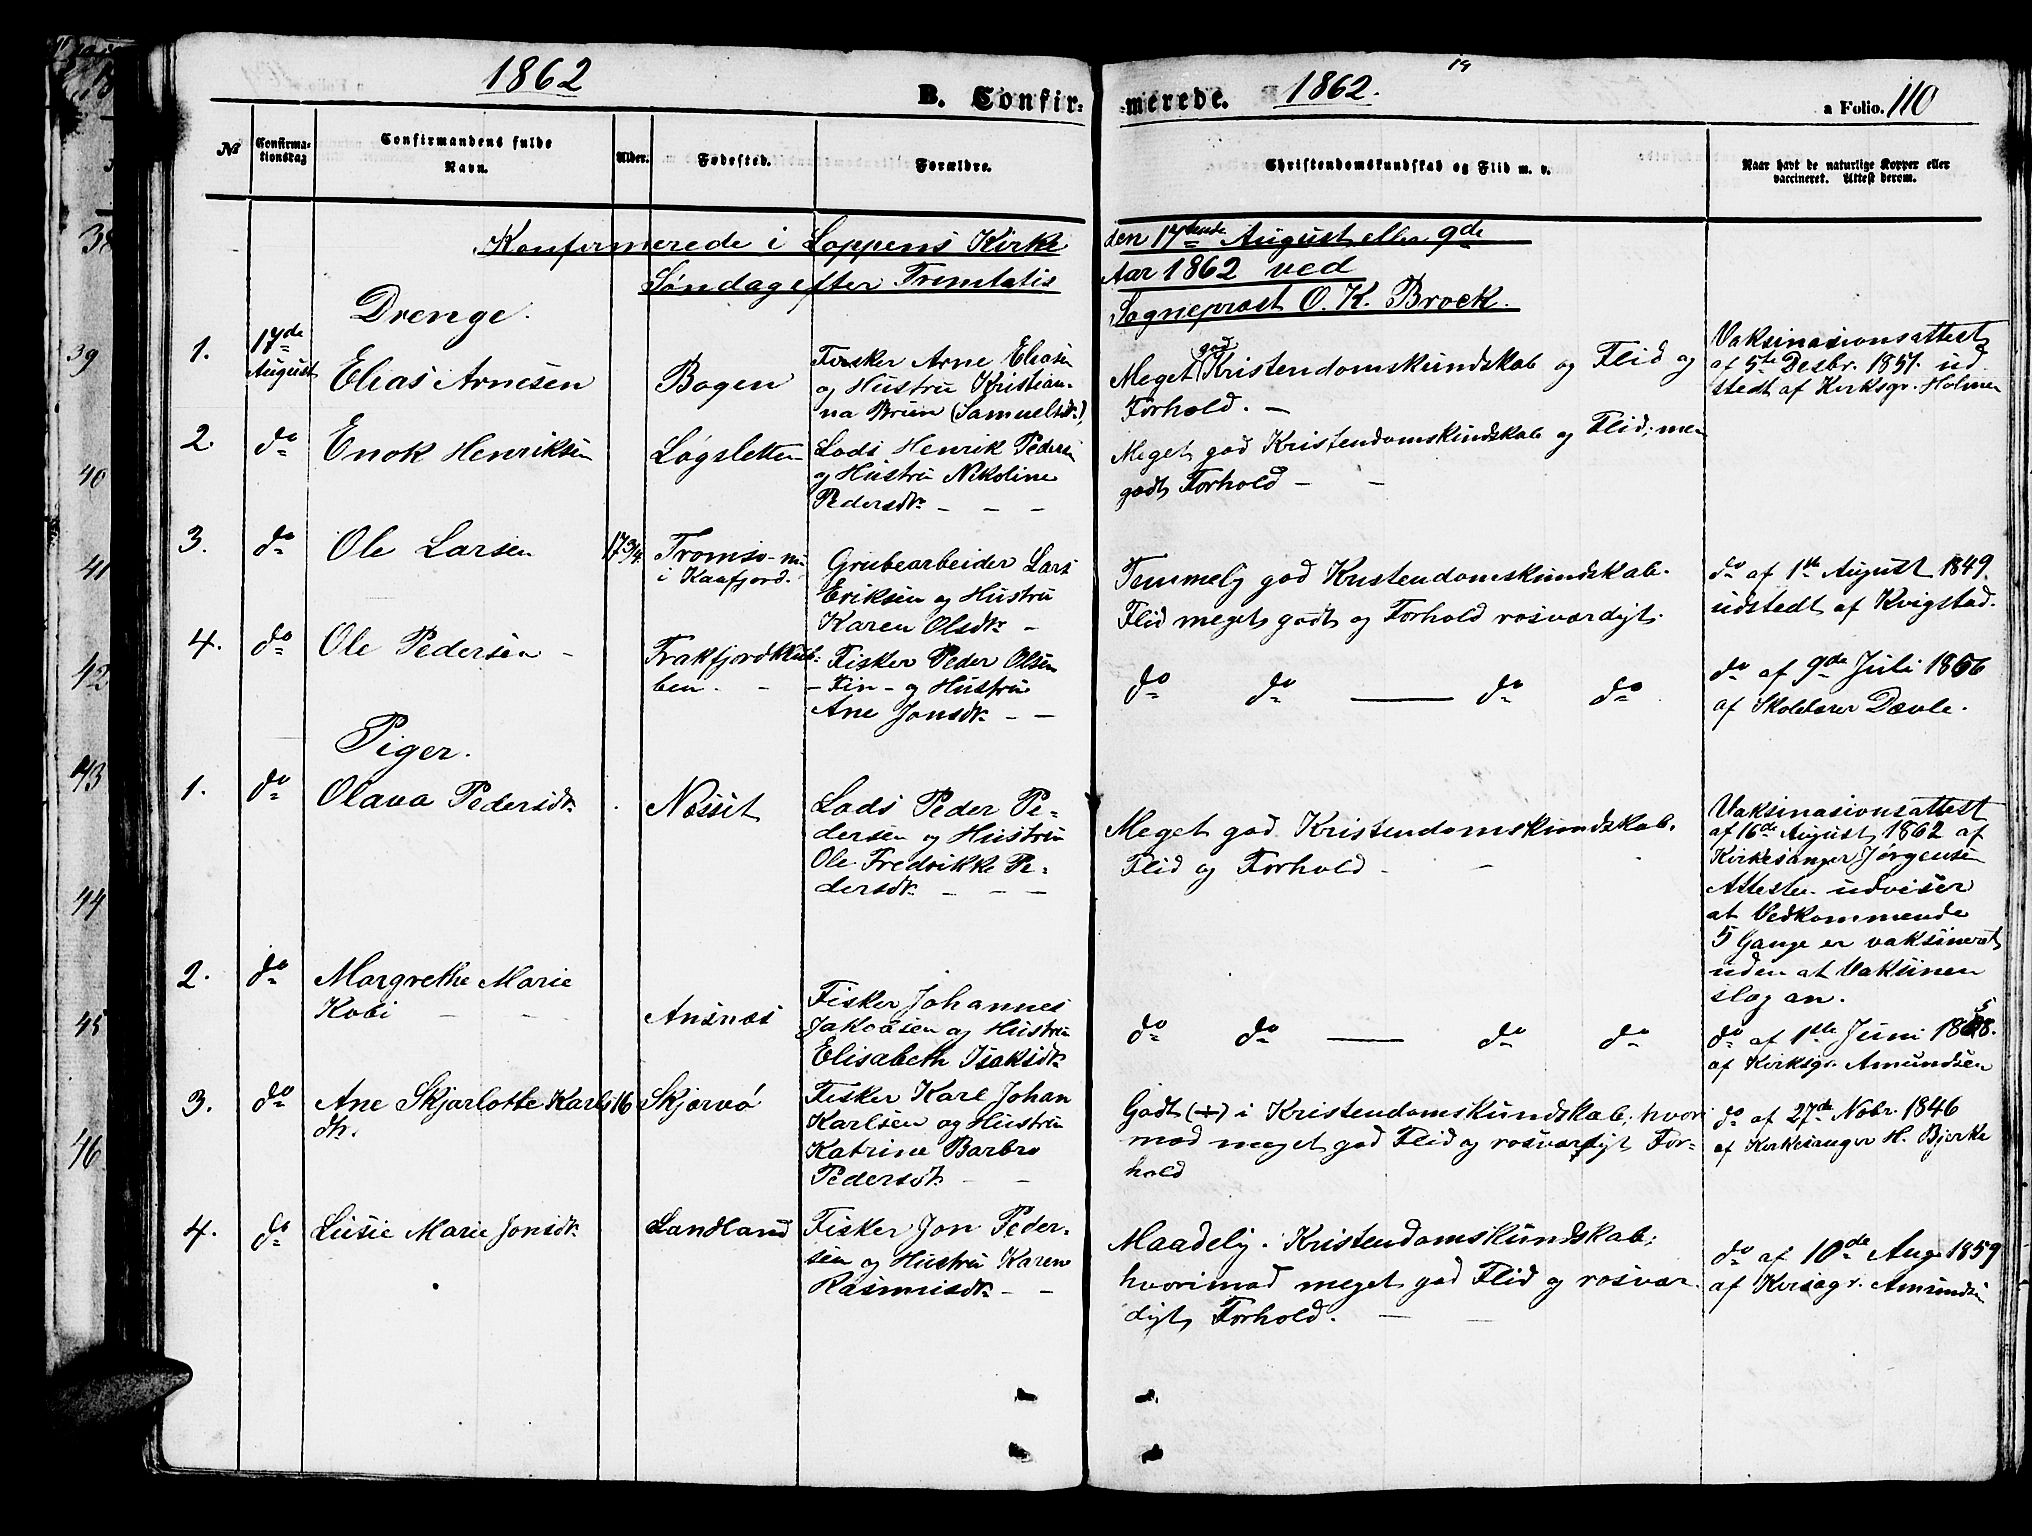 1862
B. Confir-
-merede.
1862.
19
a Folio. 110
№
Confirma-
tionsdag
Confirmandens fulde
Navn.
Alder.
Fødested.
Forældre.
Christendomskundskab og Flid m. v.
Naar havt de naturlige Kopper eller
vaccineret. Attest derom.
Konfermerede i Loppens Kirke den 17tende August eller 9de
Søndag efter Trinitatis Aar 1862 ved
Sogneprest O. K. Brock.
Drenge.
1.
17de
August
Elias Arnesen
Bogen
Fisker Arne Eliasen
og Hustru Kristian-
na Brun (Samuelsdt.)
Meget god Kristendomskundskab og Flid og
Forhold. —
Vaksinasionsattest
af 5te Desbr. 1851. ud
stedt af Kirksgr. Holmen
2.
do
Enok Henriksen
Løgsletten
Lods Henrik Pedersen
og Hustru Nikoline
Pedersdt. — — —
Meget god Kristendomskundskab og Flid; men
godt Forhold — —
3.
do
Ole Larsen
17 3/4
Tromsø - nu
i Kaafjord.
Grubearbeider Lars
Eriksen og Hustru
Karen Olsdt. —
Temmelig god Kristendomskundskab.
Flid meget godt og Forhold rosværdigt.
do af 1ste August 1849.
udstedt af Kvigstad.
4.
do
Ole Pedersen —
Frakfjordklub-
ben. —
Fisker Peder Olsen
- Fin - og Hustru
Ane Jonsdt. — —
do do — do do
do af 9de Juli 1856
af Skolelærer Dævle.
Piger.
1.
do
Olava Pedersdt.
Nesset
Lods Peder Pe-
dersen og Hustru
Ole Fredrikke Pe-
dersdt. — — —
Meget god Kristendomskundskab.
Flid og Forhold — —
Vaksinasionsattest
af 16de August 1862 af
Kirkesanger Jørgensen
Attesten udviser
at Vedkommende
5 Gange er vaksineret
uden at Vaksinen
slog an.
2.
do
Margrethe Marie
Kobi — —
Ansnæs
Fisker Johannes
Jakobsen og Hustru
Elisabeth Isaksdt.
do do — do do
do af 1ste Juni 1858.
af Kirksgr. Amundsen
3.
do
Ane Skjarlotte Karls
dt.
16
Skjervø
Fisker Karl Johan
Karlsen og Hustru
Katrine Barbro
Pedersdt. — —
Godt (+) i Kristendomskundskab; hvori
mod meget god Flid og rosværdigt For-
hold
do af 27de Nobr. 1846
af Kirkesanger H. Bjerke
4.
do
Lusie Marie Jonsdt.
Sandland
Fisker Jon Peder-
sen og Hustru Karen
Rasmusdt. — —
Maadelig Kristendomskundskab;
hvorimod meget god Flid og rosvær-
digt Forhold. — —
do af 10de Aug 1859
af Kirsagr. Amundsen
38
39
40
41
42
43
44
45
46